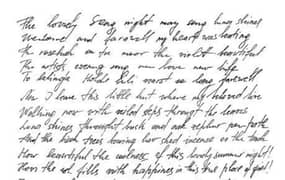 The lovely song night many song luna shines
Welcome and farewell my heart was beating
The near the violet beautiful
The artist's evening song new love new life
To belinde Holde Lili farewell
Now I leave this little hut where my beloved lives
Walking now with veiled steps through the leaves
Luna shines through bush and oak zephyr
And the birch trees bowing low shed incense on the track
How beautiful the coolness of this lovely summer night!
How the soul fills with happiness in this true place of quiet!